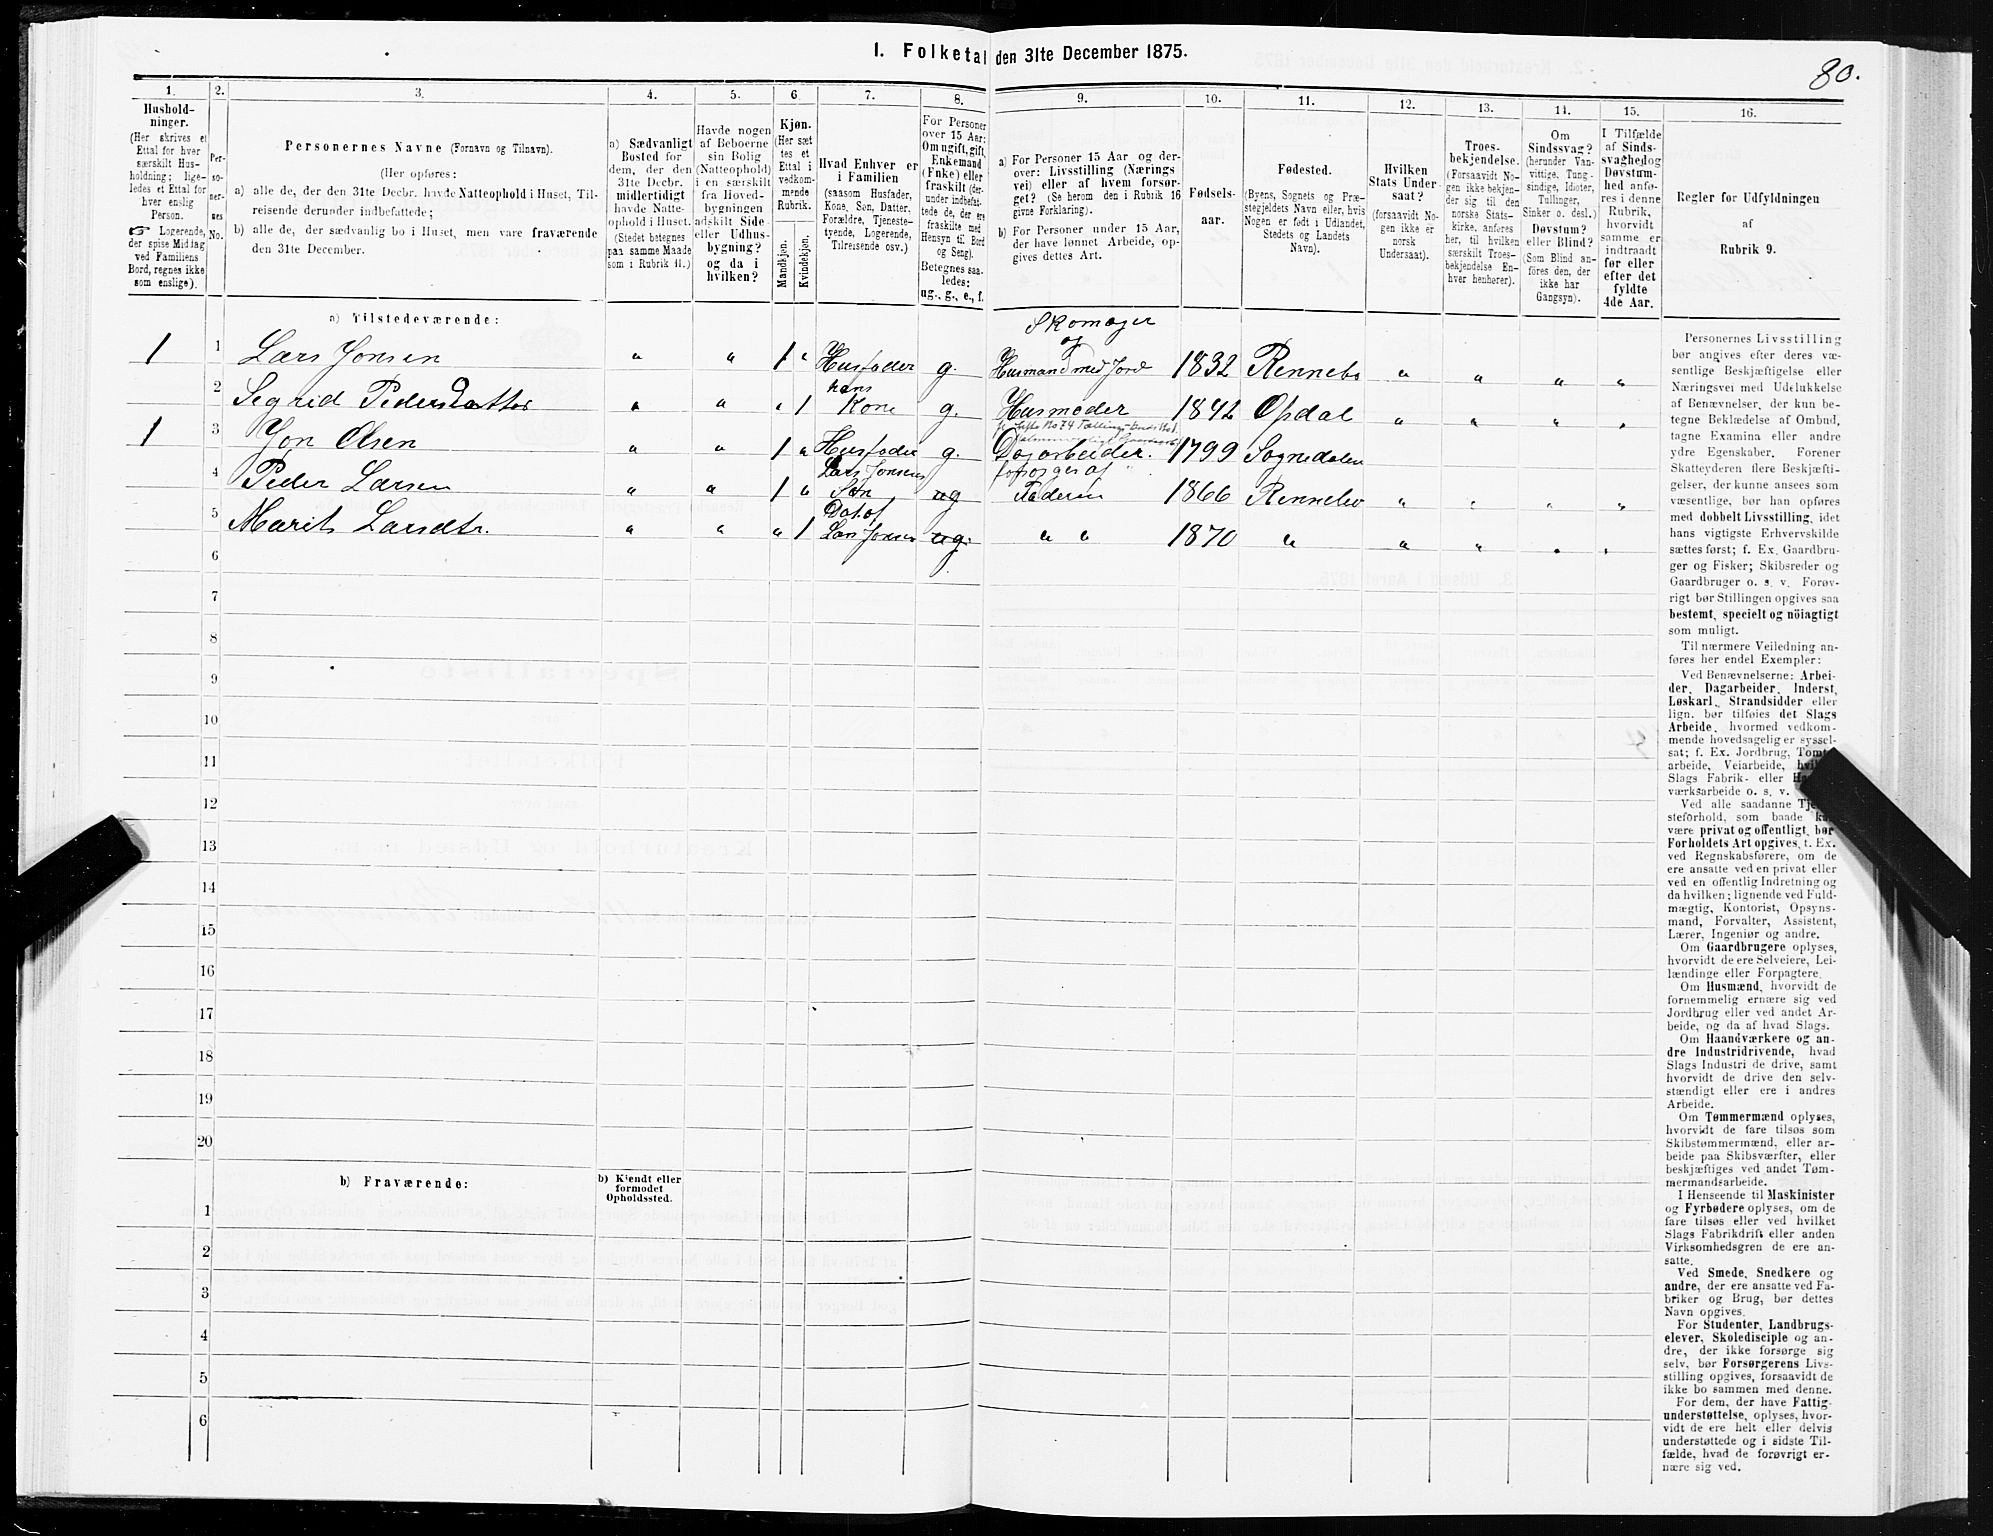 I. Folketal den 31te December 1875.
80.
1. 2. 3. 4. 5. 6. 7. 8. 9. 10. 11. 12. 13. 14. 15. 16.
Hushold-
ninger.
(Her skrives et
Ettal for hver
særskilt Hus-
holdning; lige-
ledes et Ettal for
hver enslig
Person.
☞ Logerende,
der spise Middag
ved Familiens
Bord, regnes ikke
som enslige).
Per-
so-
ner-
nes
No.
Personernes Navne (Fornavn og Tilnavn).
(Her opføres:
a) alle de, der den 31te Decbr. havde Natteophold i Huset, Til-
reisende derunder indbefattede;
b) alle de, der sædvanlig bo i Huset, men vare fraværende
den 31te December.
a) Sædvanligt
Bosted for
dem, der den
31te Decbr.
midlertidigt
havde Natte-
ophold i Huset.
(Stedet betegnes
paa samme Maade
som i Rubrik 11.)
Havde nogen
af Beboerne
sin Bolig
(Natteophold)
i en særskilt
fra Hoved-
bygningen
adskilt Side-
eller Udhus-
bygning?
og da i
hvilken?
Kjøn.
(Her sæt-
tes et
Ettal i
vedkom-
mende
Rubrik.
Mandkjøn.
Kvindekjøn.
Hvad Enhver er
i Familien
(saasom Husfader,
Kone, Søn, Datter,
Forældre, Tjeneste-
tyende, Logerende,
Tilreisende osv.)
For Personer
over 15 Aar:
Om ugift, gift,
Enkemand
(Enke) eller
fraskilt (der-
under indbefat-
tede de, der ere
fraskilte med
Hensyn til Bord
og Seng).
Betegnes saa-
ledes:
ug., g., e., f.
a) For Personer 15 Aar og der-
over: Livsstilling (Nærings
vei) eller af hvem forsør-
get? (Se herom den i Rubrik 16
givne Forklaring).
b) For Personer under 15 Aar,
der have lønnet Arbeide, op-
gives dettes Art.
Fødsels-
aar.
Fødested.
(Byens, Sognets og Præ-
stegjeldets Navn eller, hvis
Nogen er født i Udlandet,
Stedets og Landets
Navn).
Hvilken
Stats Under-
saat?
(forsaavidt No-
gen ikke er
norsk
Undersaat).
Troes-
bekjendelse.
(Forsaavidt No-
gen ikke bekjen-
der sig til den
norske Stats-
kirke, anføres
her, til hvilken
særskilt Troes-
bekjendelse En-
hver henhører).
Om
Sindssvag?
(herunder Van-
vittige, Tung-
sindige, Idioter,
Tullinger,
Sinker o. desl.)
Døvstum?
eller Blind?
(Som Blind an-
føres den, der
ikke har
Gangsyn).
I Tilfælde
af Sinds-
svaghed og
Døvstum-
hed anfø-
res i denne
Rubrik,
hvorvidt
samme er
indtraadt
før eller
efter det
fyldte
4de Aar.
Regler for Udfyldningen
af
Rubrik 9.
a) Tilstedeværende:
1 1 Lars Jonsen " " 1 " Husfader g. Skomager og Husmand med Jord 1832 Rennebo " " " "
2 Segrid Pedersdatter " " " 1 hans Kone g. Husmoder 1842 Opdal " " " "
1 3 Jon Olsen " " 1 " Husfader g. Dagarbeider. 1799 Sognedalen
4 Peder Larsen " " 1 " Lars Jonsens Søn ug forsørges af Faderen 1866 Rennebo " " " "
5 Marit Larsdtr. " " " 1 Dat. af Lars Jonsen ug. " " 1870 " " " " "
6
7
8
9
10
11
12
13
14
15
16
17
18
19
20
b) Fraværende:
b) Kjendt eller
formodet
Opholdssted.
1
2
3
4
5
6
Personernes Livsstilling
bør angives efter deres væ-
sentlige Beskjæftigelse eller
Næringsvei med Udelukkelse
af Benævnelser, der kun be-
tegne Beklædelse af Ombud,
tagne Examina eller andre
ydre Egenskaber. Forener
Skatteyderen flere Beskjæfti-
gelser, der kunne ansees som
væsentlige, bør han opføres
med dobbelt Livsstilling, idet
hans vigtigste Erhvervskilde
sættes først; f. Ex. Gaardbru-
ger og Fisker; Skibsreder og
Gaardbruger o. s. v. Forøv-
rigt bør Stillingen opgives saa
bestemt, specielt og nöiagtigt
som muligt.
Til nærmere Veiledning an-
føres her endel Exempler:
Ved Benævnelserne: Arbei-
der, Dagarbeider, Inderst,
Løskarl, Strandsidder eller
lign. bør tilføies det Slags
Arbeide, hvormed vedkom-
mende hovedsagelig er syssel-
sat; f. Ex. Jordbrug, Tomt-
arbeide, Veiarbeide,
Slags Fabrik- eller
værksarbeide o. s. v.
Ved alle saadanne
steforhold, som baade
være privat og offentligt, bør
Forholdets Art opgives, f. Ex.
ved Regnskabsførere, om de
ere ansatte ved en privat eller
ved en offentlig Indretning og
da hvilken; lignende ved Fuld-
mægtig, Kontorist, Opsyns-
mand, Forvalter, Assistent,
Lærer, Ingeniør og andre.
Om Gaardbrugere oplyses,
hvorvidt de ere Selveiere, Lei-
lændinge eller Forpagtere.
Om Husmænd, hvorvidt de
fornemmelig ernære sig ved
Jordbrug eller ved andet Ar-
beide, og da af hvad Slags.
Om Haandværkere og an-
dre Industridrivende, hvad
Slags Industri de drive, samt
hvorvidt de drive den selv-
stændigt eller ere i andres
Arbeide.
Om Tømmermænd oplyses,
hvorvidt de fare tilsøs som
Skibstømmermænd, eller ar-
beide paa Skibsværfter, eller
beskjæftiges ved andet Tøm-
mermandsarbeide.
I Henseende til Maskinister
og Fyrbødere oplyses, om de
fare tilsøs eller ved hvilket
Slags Fabrikdrift eller anden
Virksomhedsgren de ere an-
satte.
Ved Smede, Snedkere og
andre, der ere ansatte ved Fa-
briker og Brug, bør dettes
Navn opgives.
For Studenter, Landbrugs-
elever, Skoledisciple og an-
dre, der ikke forsørge sig
selv, bør Forsørgerens Livs-
stilling opgives, forsaavidt de
ikke bo sammen med denne.
For dem, der have Fattig-
understøttelse, oplyses, hvor-
vidt de ere helt eller delvis
understøttede og i sidste Til-
fælde, hvad de forøvrigt er-
nære sig ved.